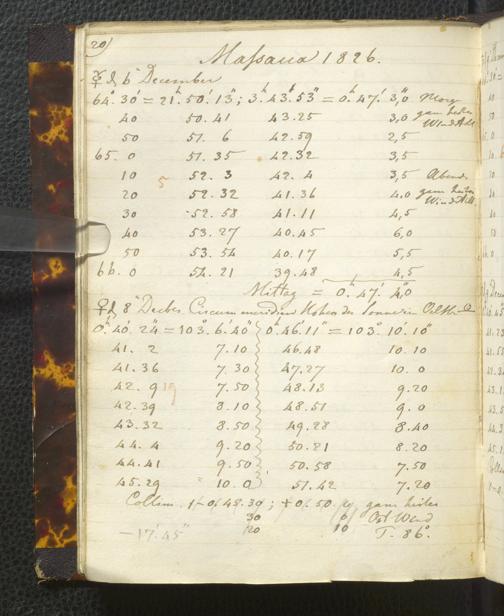 20)
Massaua 1826.
☿ d 6 December
64° 30' = 21h 50' 13"; 3h 43' 53" = 0h 47' 3,0 Morg
40 50. 41 43. 25 3,0 ganz heiter
50 51. 6 42. 59 2,5 Wind N.W.
65. 0 51. 35 42. 32 3,5
10 52. 3 42. 4 3,5 Abend.
20 5 52. 32 41. 36 4,0 ganz heiter
30 52. 58 41. 11 4,5 Wind N.W.
40 53. 27 40. 45 6,0
50 53. 54 40. 17 5,5
66. 0 54. 21 39. 48 4,5
Mittag = 0h 47' 4"0
♀ d 8 Decbr. Circummeridian Höhen der Sonne in
0h 40' 24" = 103° 6' 40" 0h 46' 11" = 103° 10' 10"
41. 2 7. 10 46. 48 10. 10
41. 36 7. 30 47. 27 10. 0
42. 9 19 7. 50 48. 13 9. 20
42. 39 8. 10 48. 51 9. 0
43. 32 8. 50 49. 28 8. 40
44. 4 9. 20 50. 21 8. 20
44. 41 9. 50 50. 58 7. 50
45. 29 10. 0 51. 42 7. 20
Collim. - 0° 48. 30; + 0. 50. ganz heiter
30 Ost Wind
20 10 T. 86°.
- 17' 45"